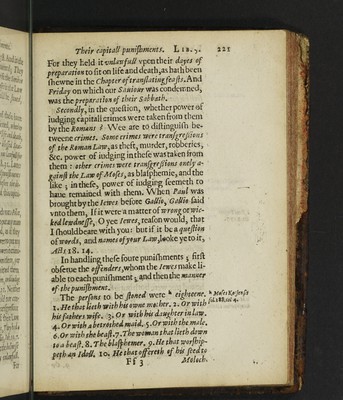 Their capitall punishments. LIB. 5. 221
For they held it vnlawfull vpon their dayes of
preparation to sit on life and death, as hath been
shewne in the Chapter of translating feasts. And
Friday on which our Saviour was condemned,
was the preparation of their Sabbath.
Secondly, in the question, whether power of
iudging capitall crimes were taken from them
by the Romans? Wee are to distinguish be-
tweene crimes. Some crimes were transgressions
of the Roman Law, as theft, murder, robberies,
&c. power of iudging in these was taken from
them: other crimes were transgressions onely a-
gainst the Law of Moses, as blasphemie, and the
like; in these, power of iudging seemeth to
haue remained with them. When Paul was
brought by the Iewes before Gallio, Gallio said
vnto them, If it were a matter of wrong or wic-
ked lewdnesse, O yee Iewes, reason would, that
I should beare with you: but if it be a question
of words, and names of your Law, looke ye to it,
Acts 18. 14.
In handling these foure punishments; first
obserue the offenders, whom the Iewes make li-
able to each punishment; and then the manner
of the punishment.
The persons to be stoned were eighteene.
1. He that lieth with his own mother. 2. Or with
his fathers wife. 3. Or with his daughter in law.
4. Or with a betrothed maid. 5. Or with the male.
6. Or with the beast. 7. The woman that lieth down
to a beast. 8. The blasphemer. 9. He that worship-
peth an Idoll. 10. He that offereth of his seed to
Ff 3 Moloch.